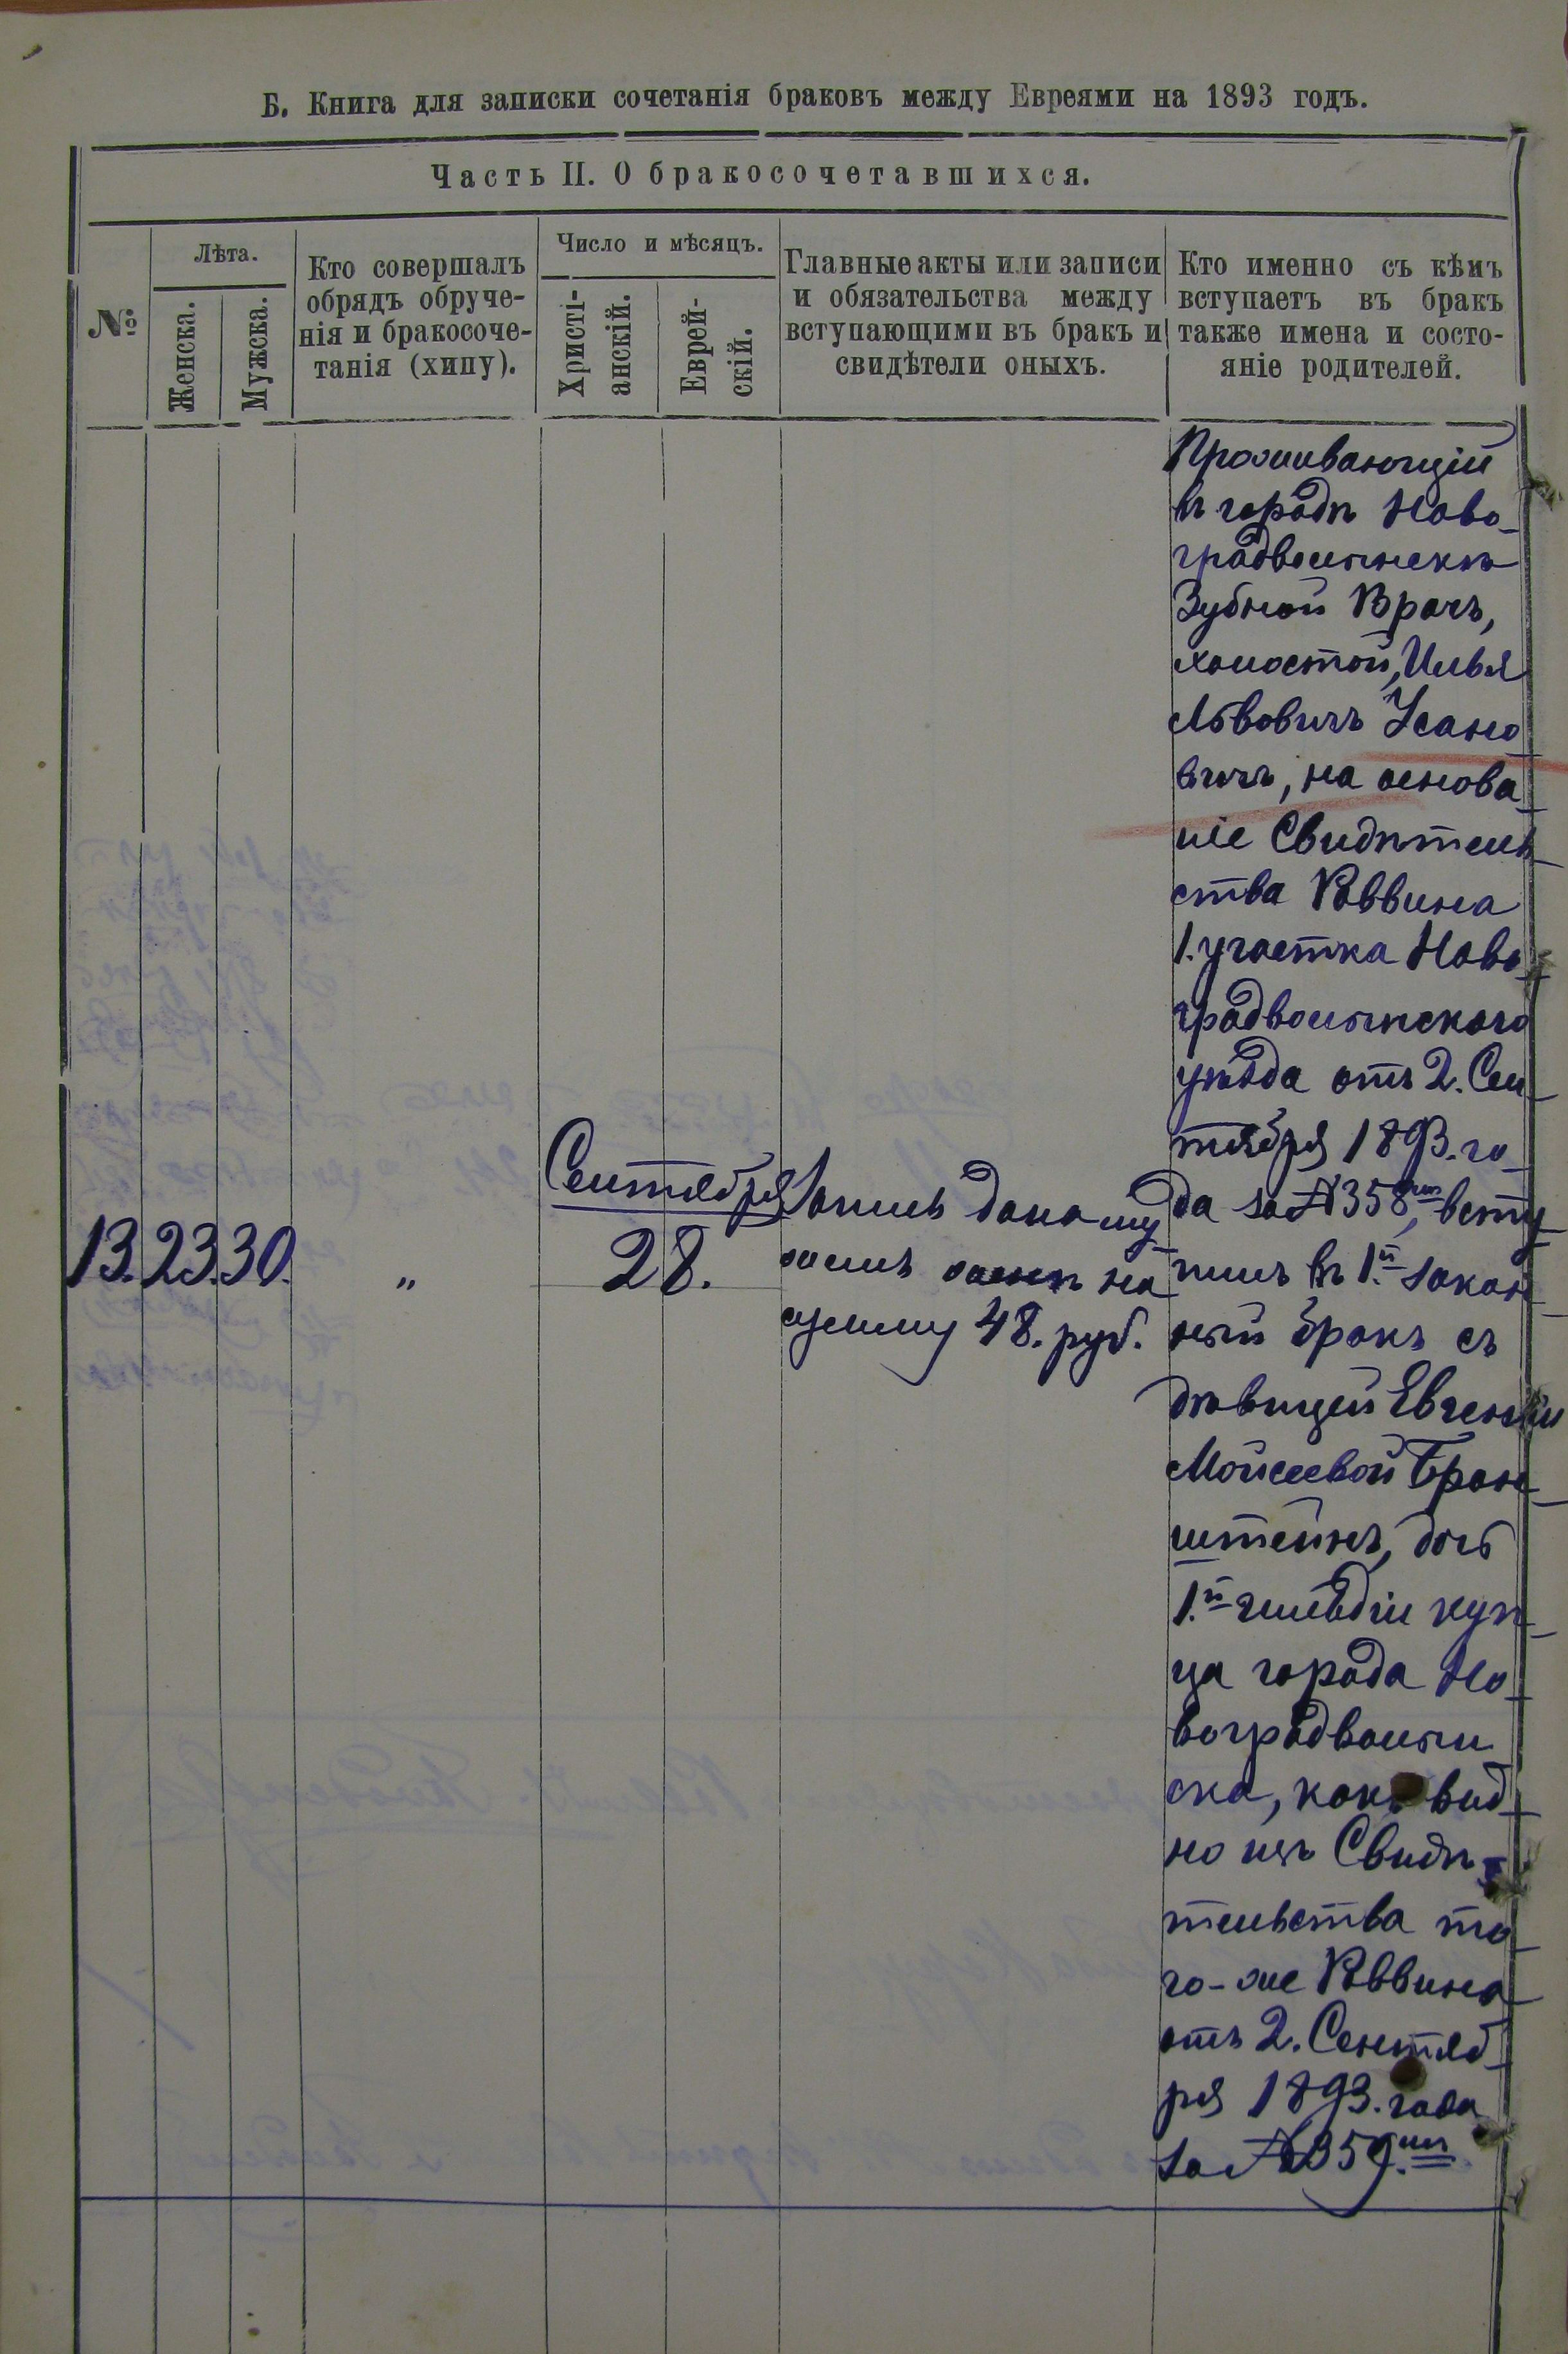 Б. Книга для записки сочетанія браковъ между Евреями на 1893 годъ.
Часть II. О бракосочетавшихся.
№
Лѣта.
Женска.
Мужска.
Кто совершалъ
обрядъ обруче-
нія и бракосоче-
танія (хипу).
Число и мѣсяцъ.
Христі-
анскій.
Еврей-
скій.
Главные акты или записи
и обязательства между
вступающими въ бракъ и
свидѣтели оныхъ.
Кто именно съ кѣмъ
вступаетъ въ бракъ
также имена и состо-
яніе родителей.
13. 23. 30. "
Сентября
28.
Запись дана му
на
сумму 48. руб.
Проживающій
въ городѣ Ново-
градволынскѣ
Зубной Врачъ,
холостой, Илья
Львовичъ Усано
вичъ, на основа-
ніе Свидѣтель-
ства Раввина
1. участка Ново-
градволынскаго
уѣзда отъ 2. Сен-
тября 1893. го-
да за № 358мъ, всту-
пилъ въ 1.й закон-
ный бракъ съ
дѣвицей Евгеніи
Мойсеевой Брон-
штейнъ, дочь
1.й гильдіи куп-
ца города Но-
воградволын-
ска, какъ вид-
но изъ Свидѣ-
тельства то-
го-же Раввина
отъ 2. Сентяб-
ря 1893. года
за № 359.мъ